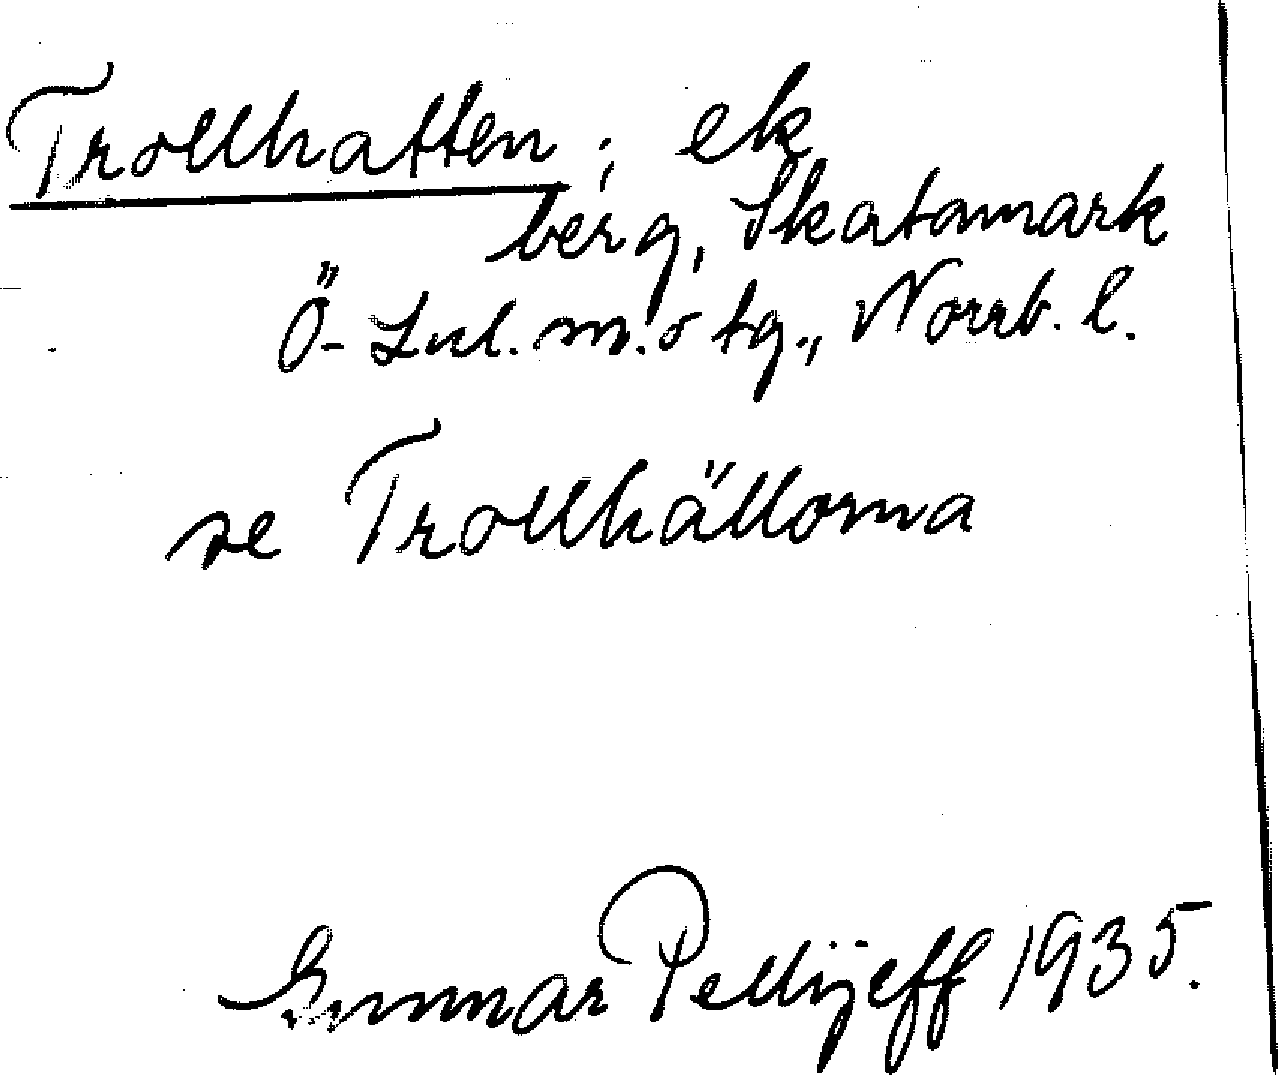 Trollhatten; ek
berg, Skatamark
Ö-Lul. m. o tg., Norrb. l.
se Trollhällorna
Gunnar Pellijeff 1935.